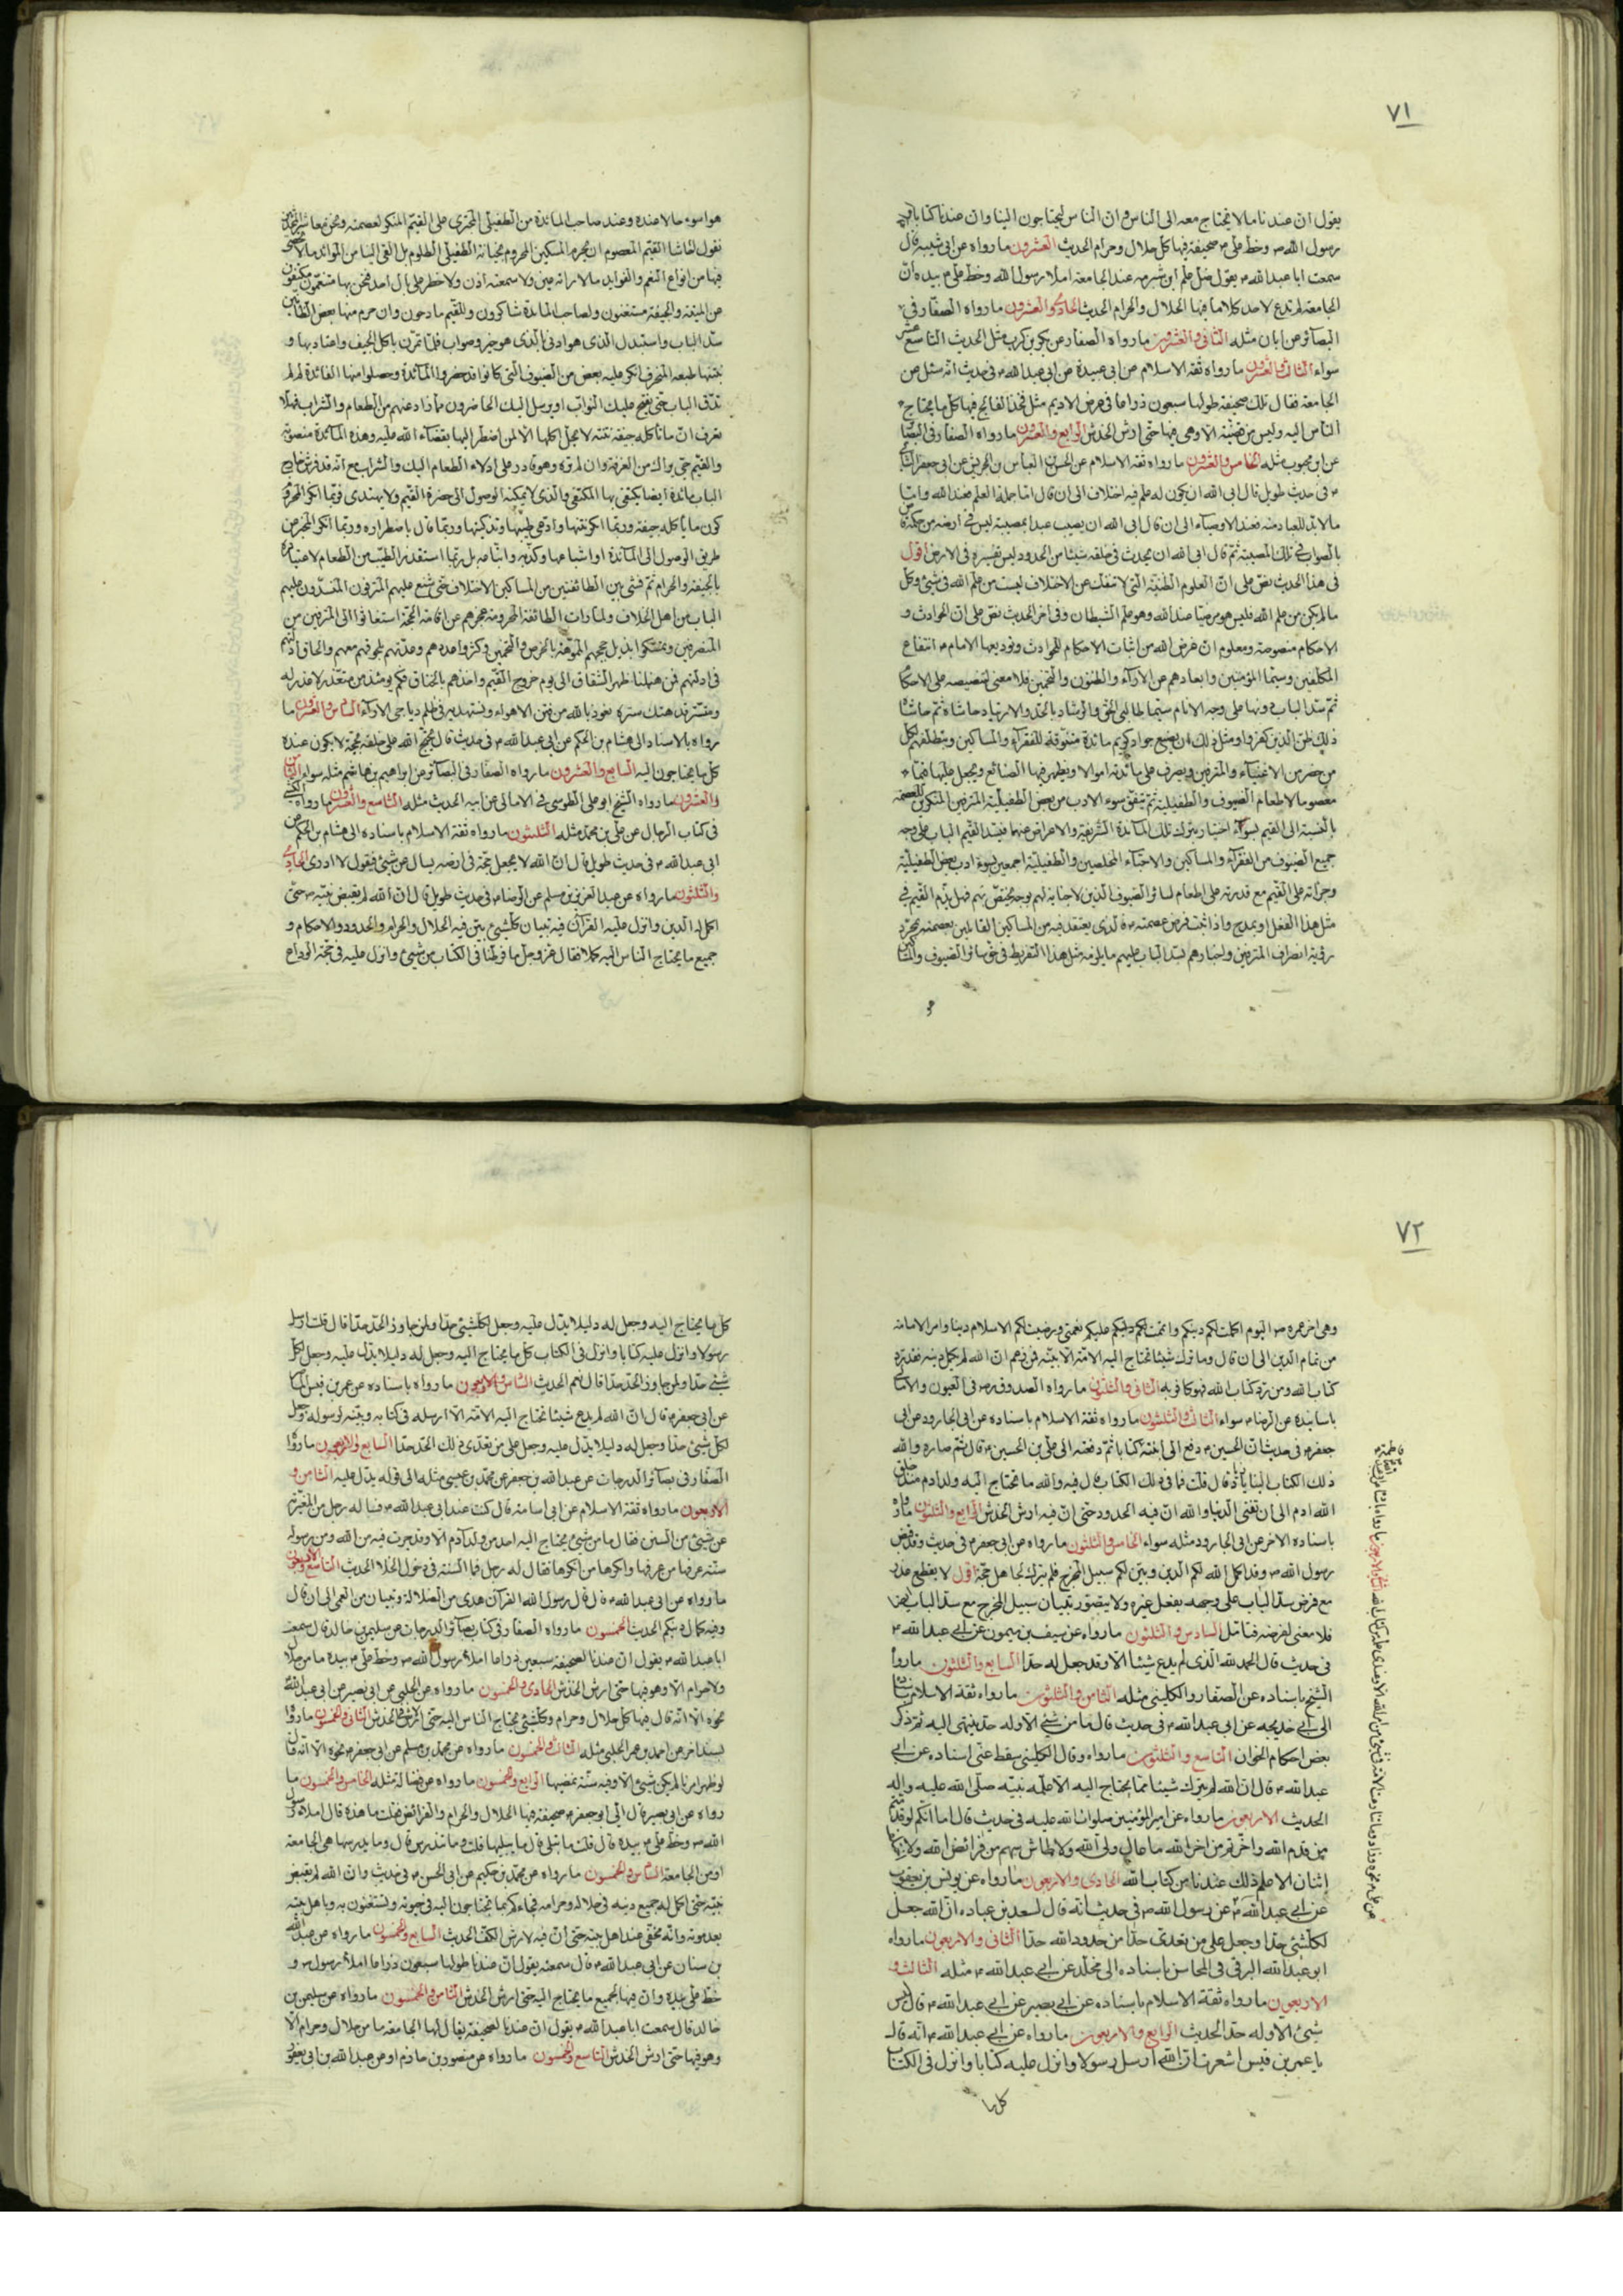 ٧١
يقول ان عندنا ما لا نحتاج معه الى الناس وان الناس ليحتاجون الينا وان عندنا كتابا
رسول الله ص وخط على ع صحيفة فيها كل حلال وحرام الحديث العشرون ما رواه عن ابى شيبة قال
سمعت ابا عبد الله ع يقول ضل علم ابن شبرمه عند الجامعة املاء رسول الله وخط على ع بيده ان
الجامعة لم تدع لاحد كلاما فيها الحلال والحرام الحديث الحادى والعشرون ما رواه الصفار فى
البصائر عن ابان مثله الثانى والعشرون ما رواه الصفار عن بكر بن كرب مثل الحديث التاسع عشر
سواء الثالث والعشرون ما رواه ثقة الاسلام عن ابى عبيدة عن ابى عبد الله ع فى حديث انه سئل عن
الجامعة فقال تلك صحيفة طولها سبعون ذراعا فى عرض الاديم مثل فخذ الفالج فيها كل ما يحتاج
الناس اليه وليس من قضية الا وهى فيها حتى ارش الخدش الرابع والعشرون ما رواه الصفار فى
عن ابن محبوب مثله الخامس والعشرون ما رواه ثقة الاسلام عن الحسن بن العباس بن الحريش عن ابى جعفر
ع فى حديث طويل قال ابى الله ان يكون له علم فيه اختلاف الى ان قال اما جملة العلم فعند الله واما
ما لابد للعباد منه فعند الاوصياء الى ان قال ابى الله ان يصيب عبدا بمصيبة ليس فى ارضه من حكمه
بالصواب فى تلك المصيبة ثم قال ابى الله ان يحدث فى خلقه شيئا من الحدود ليس تفسيره فى الارض اقول
فى هذا الحديث نص على ان العلوم الظنية التى لا تنفك عن الاختلاف ليست من علم الله فى شئ وكل
ما لم يكن من علم الله فليس هو مرضيا عند الله وهو علم الشيطان وفى اخر الحديث نص على ان الحوادث و
الاحكام منصوصة ومعلوم ان غرض الله من اثبات الاحكام للحوادث وتوديعها الامام ع انتفاع
المكلفين وسيما المؤمنين وابعادهم عن الاراء والظنون والتخمين فلا معنى لتنصيصه على
ثم سد الباب دونها على وجه الانام سيما طالبى الحق والرشاد بالجد والارتياد حاشاه ثم حاشاه
ذلك ظن الذين كفروا ومثل ذلك ان يصنع جواد كريم مائدة متنوقة للفقراء والمساكين
من حضر من الاغنياء والمترفين ويصرف على مائدته اموالا ويظهر فيها الصنائع ويجعل عليها قيما
معصوما لاطعام الضيوف والطفيلية ثم يتفق سوء الادب من بعض الطفيلية المترفين المنكرين للعصمة
بالنسبة الى القيم اختيار بترك تلك المائدة الشريفة والاعراض عنها فيسد القيم الباب على وجه
جميع الضيوف من الفقراء والمساكين والاحباء المخلصين والطفيلية اجمعين بسوء ادب بعض الطفيلية
وجرأته على القيم مع قدرته على اطعام سائر الضيوف الذين لا جناية لهم بوجه يختص بهم فهل يذم القيم فى
مثل هذا الفعل او يمدح واذا ثبت فرض عصمته فالذى يعتقد فيه من المساكين القائلين بعصمته بمجرد
رؤية انصراف المترفين واخبارهم بسد الباب عليهم ما يلزمه مثل هذا التفريط فى حق سائر الضيوف
هو اسوء حالا عنده وعند صاحب المائدة من الطفيلى المجترى على القيم المنكر لعصمته ونحن معاشر
نقول حاشا القيم المعصوم ان يحرم المسكين المحروم بجناية الطفيلى الظلوم بل القى الينا من الموائد ما لا يحصى
فيها من انواع النعم والفوايد ما لا راته عين ولا سمعته اذن ولا خطر على بال احد فنحن بها متنعمون
عن الميتة والجيفة مستغنون ولصاحب المائدة شاكرون وللقيم مادحون وان حرم منها بعض
سد الباب واستبدل الذى هو ادنى بالذى هو خير وصواب فلما تمرن باكل الجيف واعتاد بها و
طبعه المنحرف انكر عليه بعض من الضيوف التى كانوا قد حضروا المائدة وحصلوا منها الفائدة لم لم
تدق الباب حتى يفتح عليك البواب او يرسل اليك الحاضرون مما زاد عنهم من الطعام والشراب فهلا
تعرف ان ما تاكله جيفة نتنة لا يحل اكلها الا لمن اضطر اليها بقضاء الله عليه وهذه المائدة منصوبة
والقيم حى يراك من الغرفة وان لم تره وهو قادر على ادلاء الطعام اليك والشراب مع انه قد فرش خارج
الباب مائدة ايضا يكتفى بها المكتفى والذى لا يمكنه الوصول الى حضرة القيم ولا يهتدى فربما انكر المحروم
كون ما ياكله جيفة وربما انكر نتنها وادعى طيبها وتذكيتها وربما قال باضطراره وربما انكر المخبر عن
طريق الوصول الى المائدة او اشباعها وكذبه بل ربما استقذر الطيب من الطعام لاعتياده
بالجيفة والحرام ثم فشى بين الطائفتين من المساكين الاختلاف حتى شنع عليهم المترفون عليهم
الباب من اهل الخلاف ولما رات الطائفة المحرومة عجزهم عن اقامة الحجة استغاثوا الى المترفين من
المنصرفين وتمسكوا بذيل حججهم المموهة بالخرص والتخمين وكثروا عددهم وعدتهم
فى ادلتهم فمن هيهنا ظهر الشقاق الى يوم خروج القيم واخذهم بالخناق فكم يومئذ من متعذر لا عذر له
ومتستر قد هتك ستره نعوذ بالله من فتن الاهواء ونستهديه فى ظلم دياجى الاراء السادس والعشرون ما
رواه بالاسناد الى هشام بن الحكم عن ابى عبد الله ع فى حديث قال يحتج الله على خلقه بحجة لا يكون عنده
كل ما يحتاجون اليه السابع والعشرون ما رواه الصفار فى البصائر عن ابراهيم بن هاشم مثله سواء الثامن
والعشرون ما رواه الشيخ ابو على الطوسى فى الامالى عن ابيه الحديث مثله التاسع والعشرون ما رواه الكشى
فى كتاب الرجال عن على بن محمد مثله الثلثون ما رواه ثقة الاسلام باسناده الى هشام بن الحكم عن
ابى عبد الله ع فى حديث طويل قال ان الله لا يجعل حجة فى ارضه يسأل عن شئ فيقول لا ادرى الحادى
والثلثون ما رواه عن عبد العزيز بن مسلم عن الرضا ع فى حديث طويل قال ان الله لم يقبض نبيه ص حتى
اكمل له الدين وانزل عليه القرآن فيه تبيان كل شئ بين فيه الحلال والحرام والحدود والاحكام و
جميع ما يحتاج الناس اليه كملا فقال عز وجل ما فرطنا فى الكتاب من شئ وانزل عليه فى حجة الوداع
٧٢
وهى اخر عمره ص اليوم اكملت لكم دينكم واتممت عليكم نعمتى ورضيت لكم الاسلام دينا وامر الامامة
من تمام الدين الى ان قال وما ترك شيئا تحتاج اليه الامة الا بينه فمن زعم ان الله لم يكمل دينه فقد رد
كتاب الله ومن رد كتاب الله فهو كافر به الثانى والثلثون ما رواه الصدوق ره فى العيون
باسانيده عن الرضا ع سواء الثالث والثلثون ما رواه ثقة الاسلام باسناده عن ابى الجارود عن ابى
جعفر ع فى حديث ان الحسين ع دفع الى ابنته كتابا ثم دفعته الى على بن الحسين ع قال ثم صار والله
ذلك الكتاب الينا يا زياد قال قلت فما فى ذلك الكتاب قال فيه والله ما تحتاج اليه ولد ادم منذ خلق
الله ادم الى ان تفنى الدنيا والله ان فيه الحدود حتى ان فيه ارش الخدش الرابع والثلثون ما رواه
باسناده الاخر عن ابى الجارود مثله سواء الخامس والثلثون ما رواه عن ابى جعفر ع فى حديث وقد قبض
رسول الله ص وقد اكمل الله لكم الدين وبين لكم سبيل المخرج فلم يترك لجاهل حجة اقول لا يقطع عذر
مع فرض سد الباب على وجهه بفعل غيره ولا يتصور تبيان سبيل المخرج مع سد الباب
فلا معنى لفرضه فتامل السادس والثلثون ما رواه عن سيف بن ميمون عن ابى عبد الله ع
فى حديث قال الحمد لله الذى لم يدع شيئا الا وقد جعل له حدا السابع والثلثون ما رواه
الشيخ باسناده عن الصفار والكلينى مثله الثامن والثلثون ما رواه ثقة الاسلام
الى ابى خديجه عن ابى عبد الله ع فى حديث قال ما من شئ الا وله حد ينتهى اليه ثم ذكر
بعض احكام الخوان التاسع والثلثون ما رواه وقال الكلينى سقط عنى اسناده عن ابى
عبد الله ع قال ان الله لم يترك شيئا مما يحتاج اليه الا علمه نبيه صلى الله عليه واله
الحديث الاربعون ما رواه عن امير المؤمنين صلوات الله عليه فى حديث قال اما انكم لو قدمتم
من قدم الله واخرتم من اخر الله ما عال ولى الله ولا طاش سهم من فرائض الله ولا
إثنان الا علم ذلك عندنا من كتاب الله الحادى والاربعون ما رواه عن يونس بن يعقوب
عن ابى عبد الله ع عن رسول الله ص فى حديث انه قال لسعد بن عباده ان الله جعل
لكل شئ حدا وجعل على من تعدى حدا من حدود الله حدا الثانى والاربعون ما رواه
ابو عبد الله البرقى فى المحاسن باسناده الى مخلد عن ابى عبد الله ع مثله الثالث و
الاربعون ما رواه ثقة الاسلام باسناده عن ابى بصير عن ابى عبد الله ع قال ليس
شئ الا وله حد الحديث الرابع والاربعون ما رواه عن ابى عبد الله ع انه قال
يا عمر بن قيس اشعرت ان الله ارسل رسولا وانزل عليه كتابا وانزل فى الكتاب
كل ما
كل ما يحتاج اليه وجعل له دليلا يدل عليه وجعل لكل شئ حدا ولمن جاوز الحد حدا قال قلت ارسل
رسولا وانزل عليه كتابا وانزل فى الكتاب كل ما يحتاج اليه وجعل له دليلا يدل عليه وجعل لكل
شئ حدا ولمن جاوز الحد حدا قال نعم الحديث السادس والاربعون ما رواه باسناده عن عمر بن قيس
عن ابى جعفر ع قال ان الله لم يدع شيئا تحتاج اليه الامة الا ارسله فى كتابه وبينه لرسوله وجعل
لكل شئ حدا وجعل له دليلا يدل عليه وجعل على من تعدى ذلك الحد حدا السابع والاربعون ما رواه
الصفار فى بصائر الدرجات عن عبد الله بن جعفر عن محمد بن عيسى مثله الى قوله يدل عليه الثامن و
الاربعون ما رواه ثقة الاسلام عن ابى اسامة قال كنت عند ابى عبد الله ع فسأله رجل من المغيرية
عن شئ من السنن فقال ما من شئ يحتاج اليه احد من ولد آدم الا وقد جرت فيه من الله ومن رسوله
سنة عرفها من عرفها وانكرها من انكرها فقال له رجل فما السنة فى دخول الخلاء الحديث التاسع والاربعون
ما رواه عن ابى عبد الله ع قال قال رسول الله القرآن هدى من الضلالة وتبيان من العمى الى ان قال
وفيه كمال دينكم الحديث الخمسون ما رواه الصفار فى كتاب بصائر الدرجات عن سليمان بن خالد قال سمعت
ابا عبد الله ع يقول ان عندنا لصحيفة سبعين ذراعا املاء رسول الله ص وخط على ع بيده ما من حلال
ولا حرام الا وهو فيها حتى ارش الخدش الحادى والخمسون ما رواه عن الحلبى عن ابى بصير عن ابى عبد الله
نحوه الا انه قال فيها كل حلال وحرام وكل شئ يحتاج الناس اليه حتى الارش فى الخدش الثانى والخمسون ما رواه
بسند اخر عن احمد بن عمر الحلبى مثله الثالث والخمسون ما رواه عن محمد بن مسلم عن ابى جعفر ع نحوه الا انه قال
لو ظهر امرنا لم يكن شئ الا وفيه سنة نمضيها الرابع والخمسون ما رواه عن فضالة مثله الخامس والخمسون ما
رواه عن ابى بصير قال اخرج الى ابو جعفر ع صحيفة فيها الحلال والحرام والفرائض قلت ما هذه قال املاء رسول
الله ص وخط على ع بيده قال قلت فما تبلى قال فما يبليها قلت وما تدرس قال وما يدرسها هى الجامعة
او من الجامعة السادس والخمسون ما رواه عن محمد بن حكيم عن ابى الحسن ع فى حديث وان الله لم يقبض
نبيه حتى اكمل له جميع دينه فى حلاله وحرامه فجاءكم بما تحتاجون اليه فى حيوته وتستغنون به وباهل بيته
بعد موته وانه مخفى عند اهل بيته حتى ان فيه لارش الكف الحديث السابع والخمسون ما رواه عن عبد الله
بن سنان عن ابى عبد الله ع قال سمعته يقول ان عندنا طولها سبعون ذراعا املاء رسول ص و
خط على بيده وان فيها لجميع ما يحتاج اليه حتى ارش الخدش الثامن والخمسون ما رواه عن سليمان بن
خالد قال سمعت ابا عبد الله ع يقول ان عندنا لصحيفة يقال لها الجامعة ما من حلال وحرام الا
وهو فيها حتى ارش الخدش التاسع والخمسون ما رواه عن منصور بن حازم او عن عبد الله بن ابى يعفور